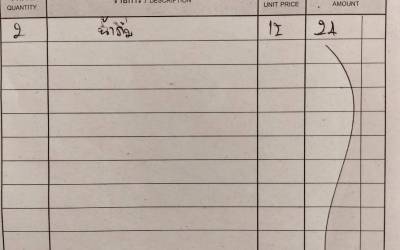 QUANTITY รายการ / DESCRIPTION UNIT PRICE AMOUNT
2 น้ำดื่ม 12 24